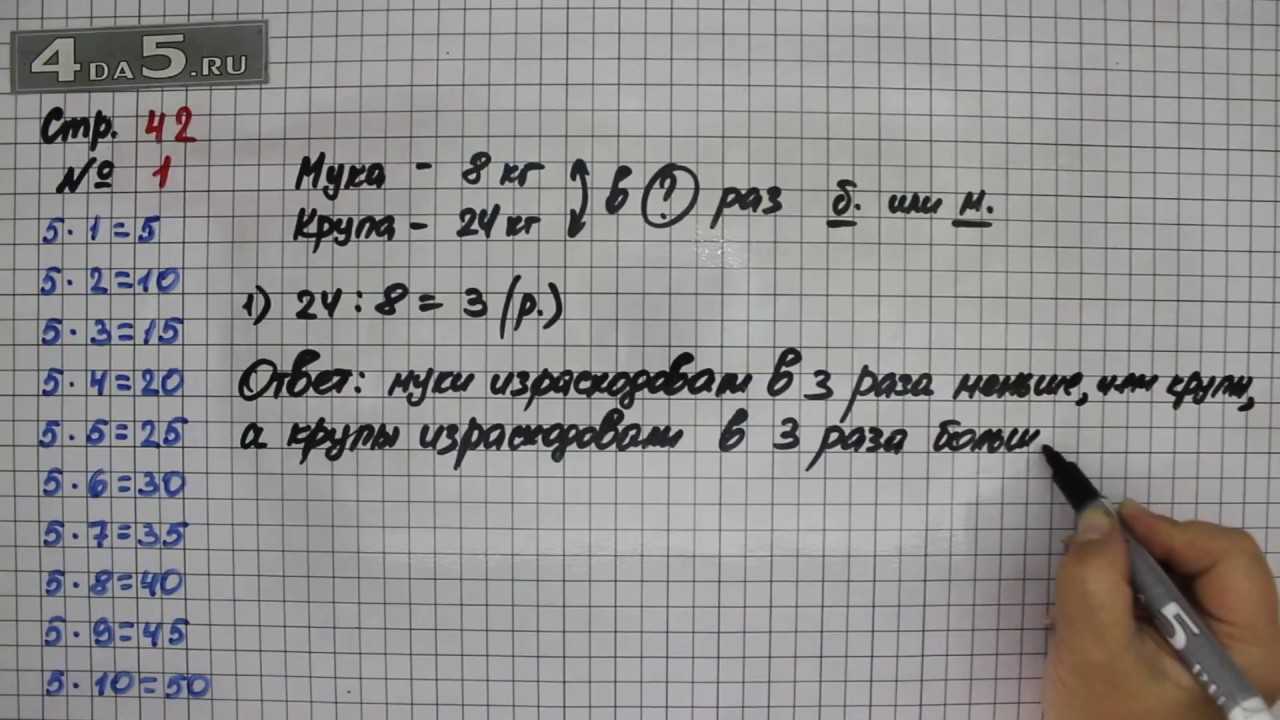 4DA5.RU
Стр. 42
№ 1
5·1=5
5·2=10
5·3=15
5·4=20
5·5=25
5·6=30
5·7=35
5·8=40
5·9=45
5·10=50
Мука - 8 кг
Крупа - 24 кг
в ? раз б. или м.
1) 24:8=3 (р.)
Ответ: муки израсходовали в 3 раза меньше, или крупы,
а крупы израсходовали в 3 раза больш
5